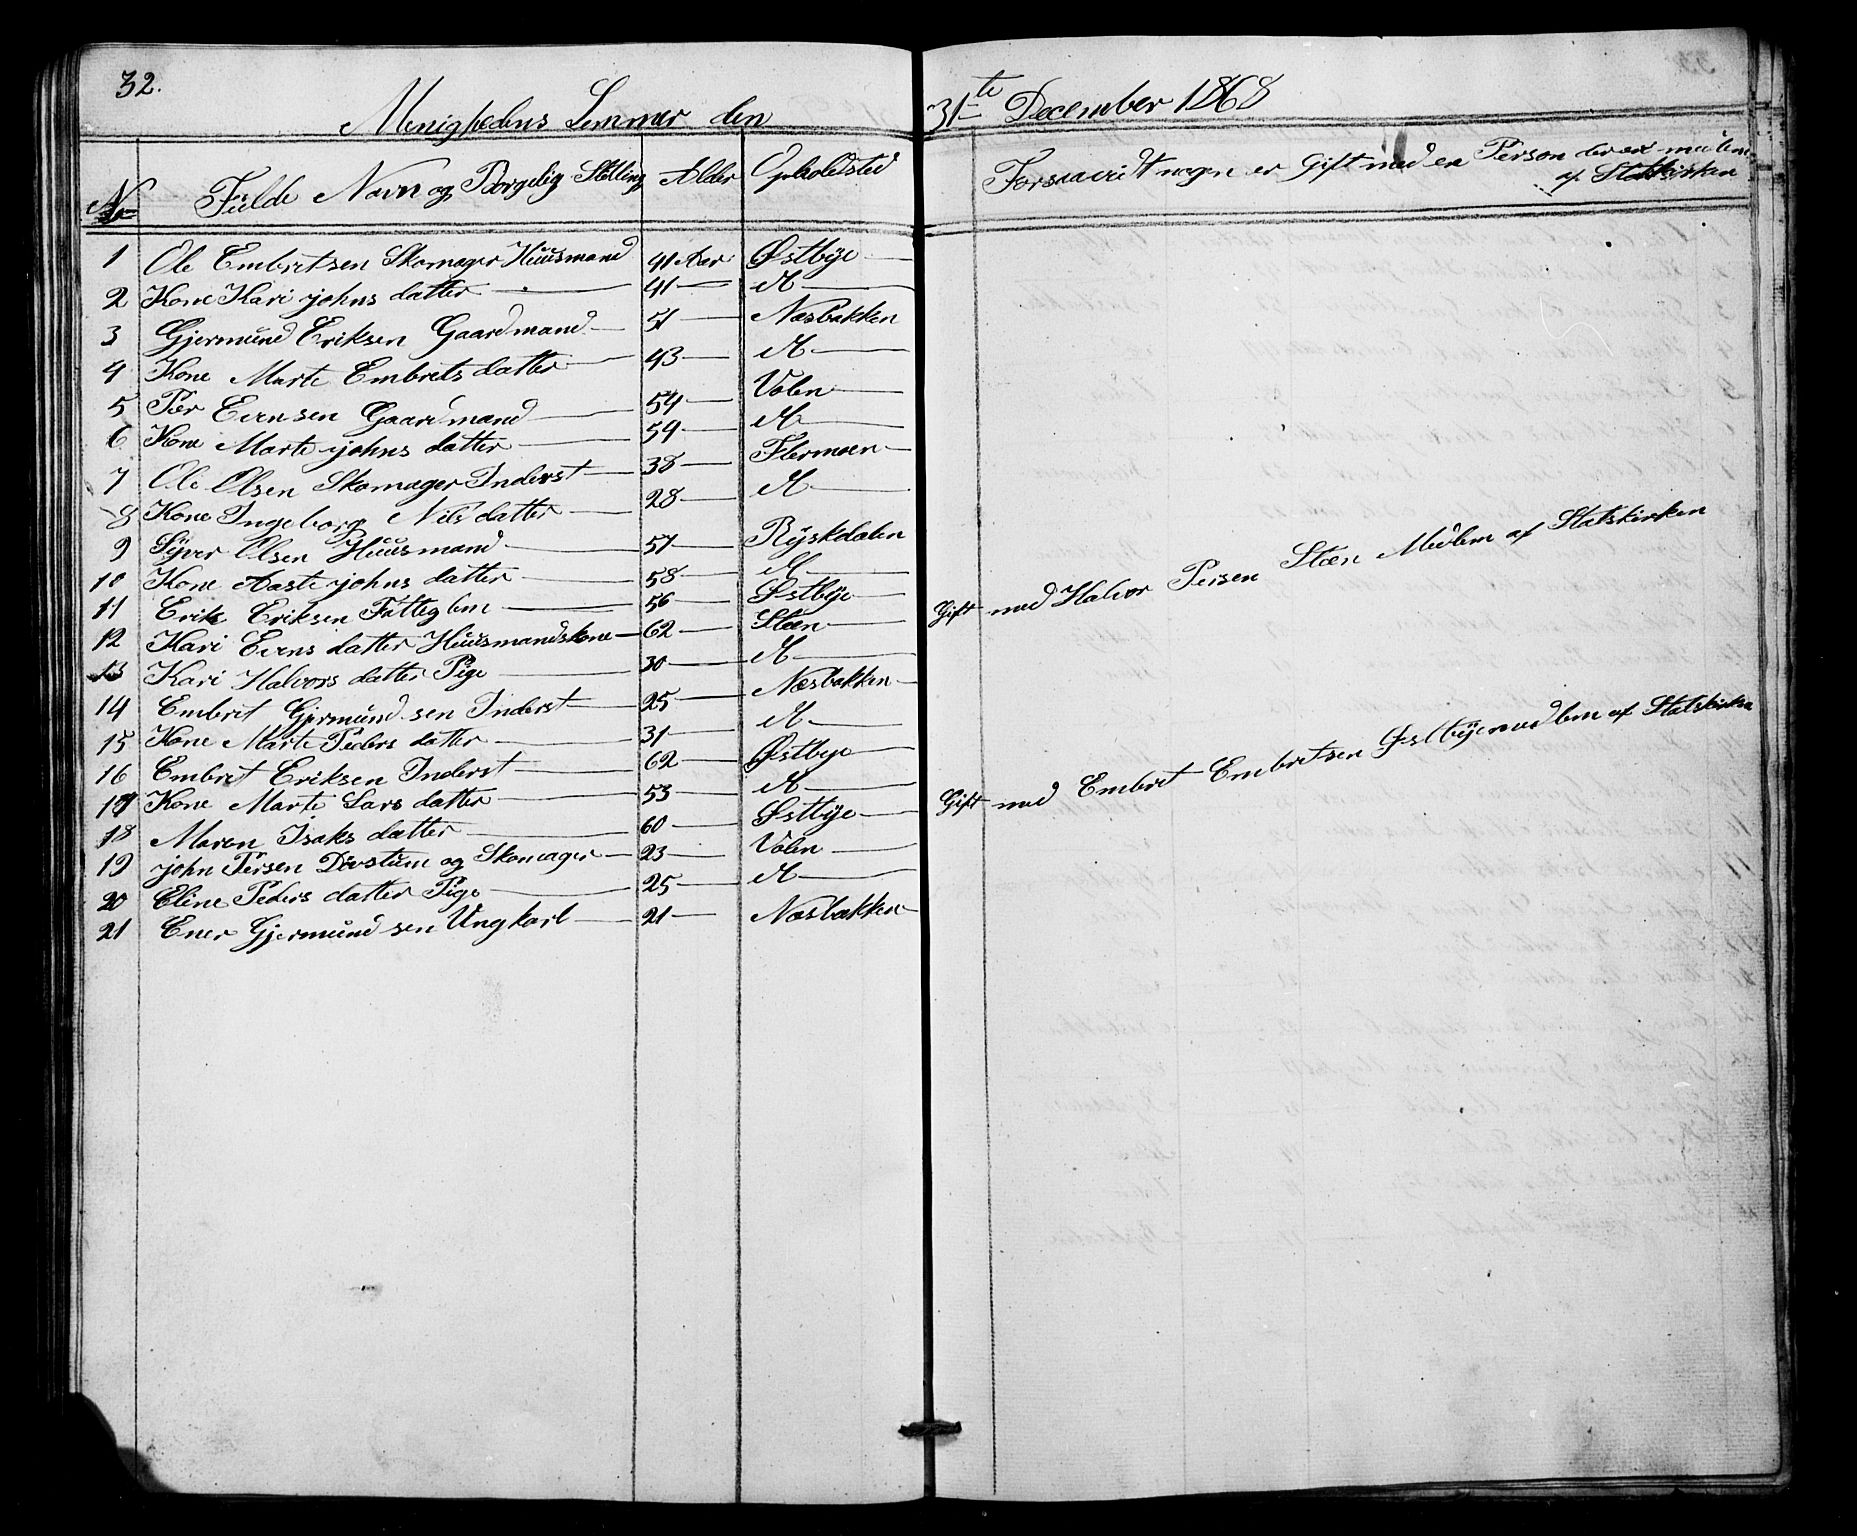 32.
Menighedens Lemmer den 31te December 1868
No Fulde Navn og Borgelig Stilling Alder Opholdsted Forsaavit nogen er Gift med en Person der er medlem af Statskirken
1 Ole Embretsen Skomager Huusmand 41 Aar Østbye
2 Kone Kari johns datter 41 M
3 Gjermund Eriksen Gaardmand 51 Næsbakken
4 Kone Marte Embrets datter 43 M
5 Per Evensen Gaardmand 54 Volen
6 Kone Marte johns datter 54 M
7 Ole Olsen Skomager Inderst 38 Flermoen
8 Kone Ingeborg Nils datter 28 M
9 Syver Olsen Huusmand 57 Ryskdalen
10 Kone Aaste johns datter 58 M
11 Erik Eriksen Fattiglem 56 Østbye
12 Kari Evens datter Huusmandskone 62 Støen Gift med Halvor Persen Støen Medlem af Statskirken
13 Kari Halvors datter Pige 30 M
14 Embret Gjermund sen Inderst 25 Næsbakken
15 Kone Marte Peders datter 31 M
16 Embret Eriksen Inderst 62 Østbye
17 Kone Marte Lars datter 53 M
18 Maren Isaks datter 60 Østbye Gift med Embret Embretsen Østbye medlem af Statskirken
19 john Persen og Skomager 23 Volen
20 Eline Peders datter Pige 25 M
21 Ener Gjermund sen Ungkarl 21 Næsbakken